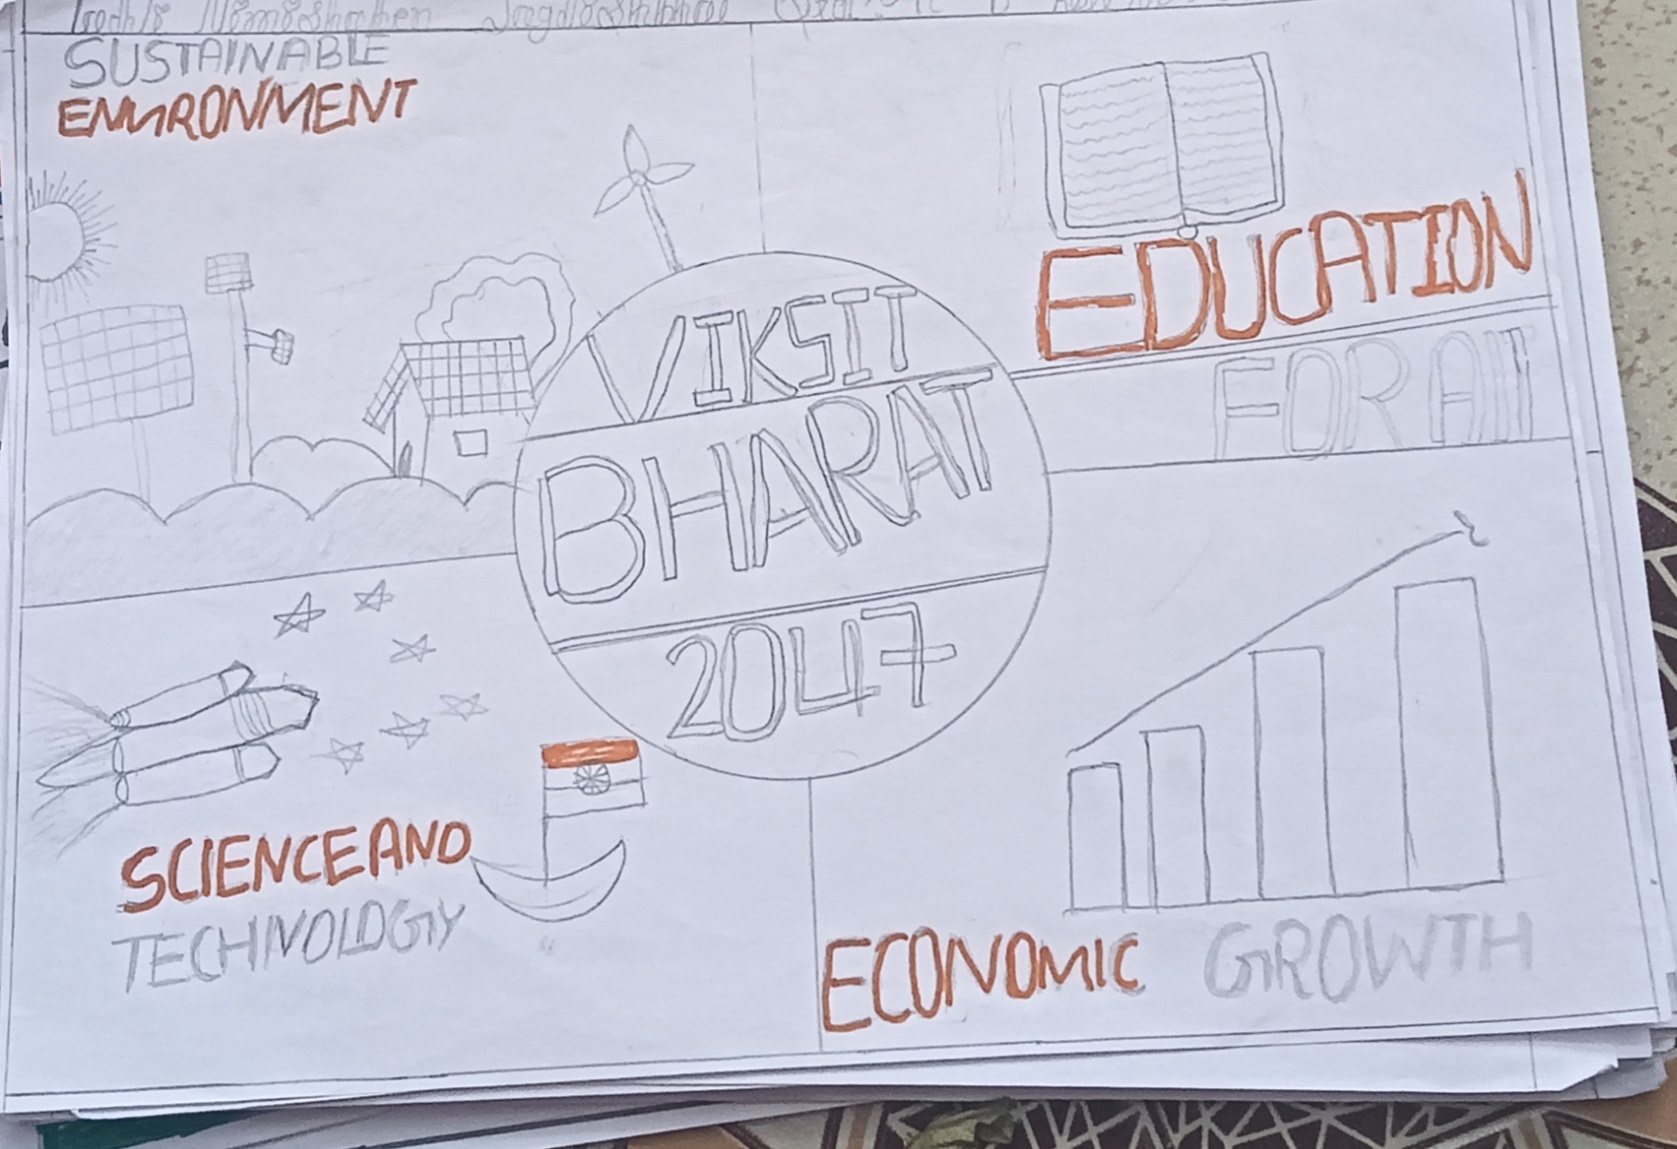 SUSTAINABLE
ENVIRONMENT
EDUCATION
FOR All
VIKSIT
BHARAT
2047
SCIENCE AND
TECHNOLOGY
ECONOMIC GROWTH